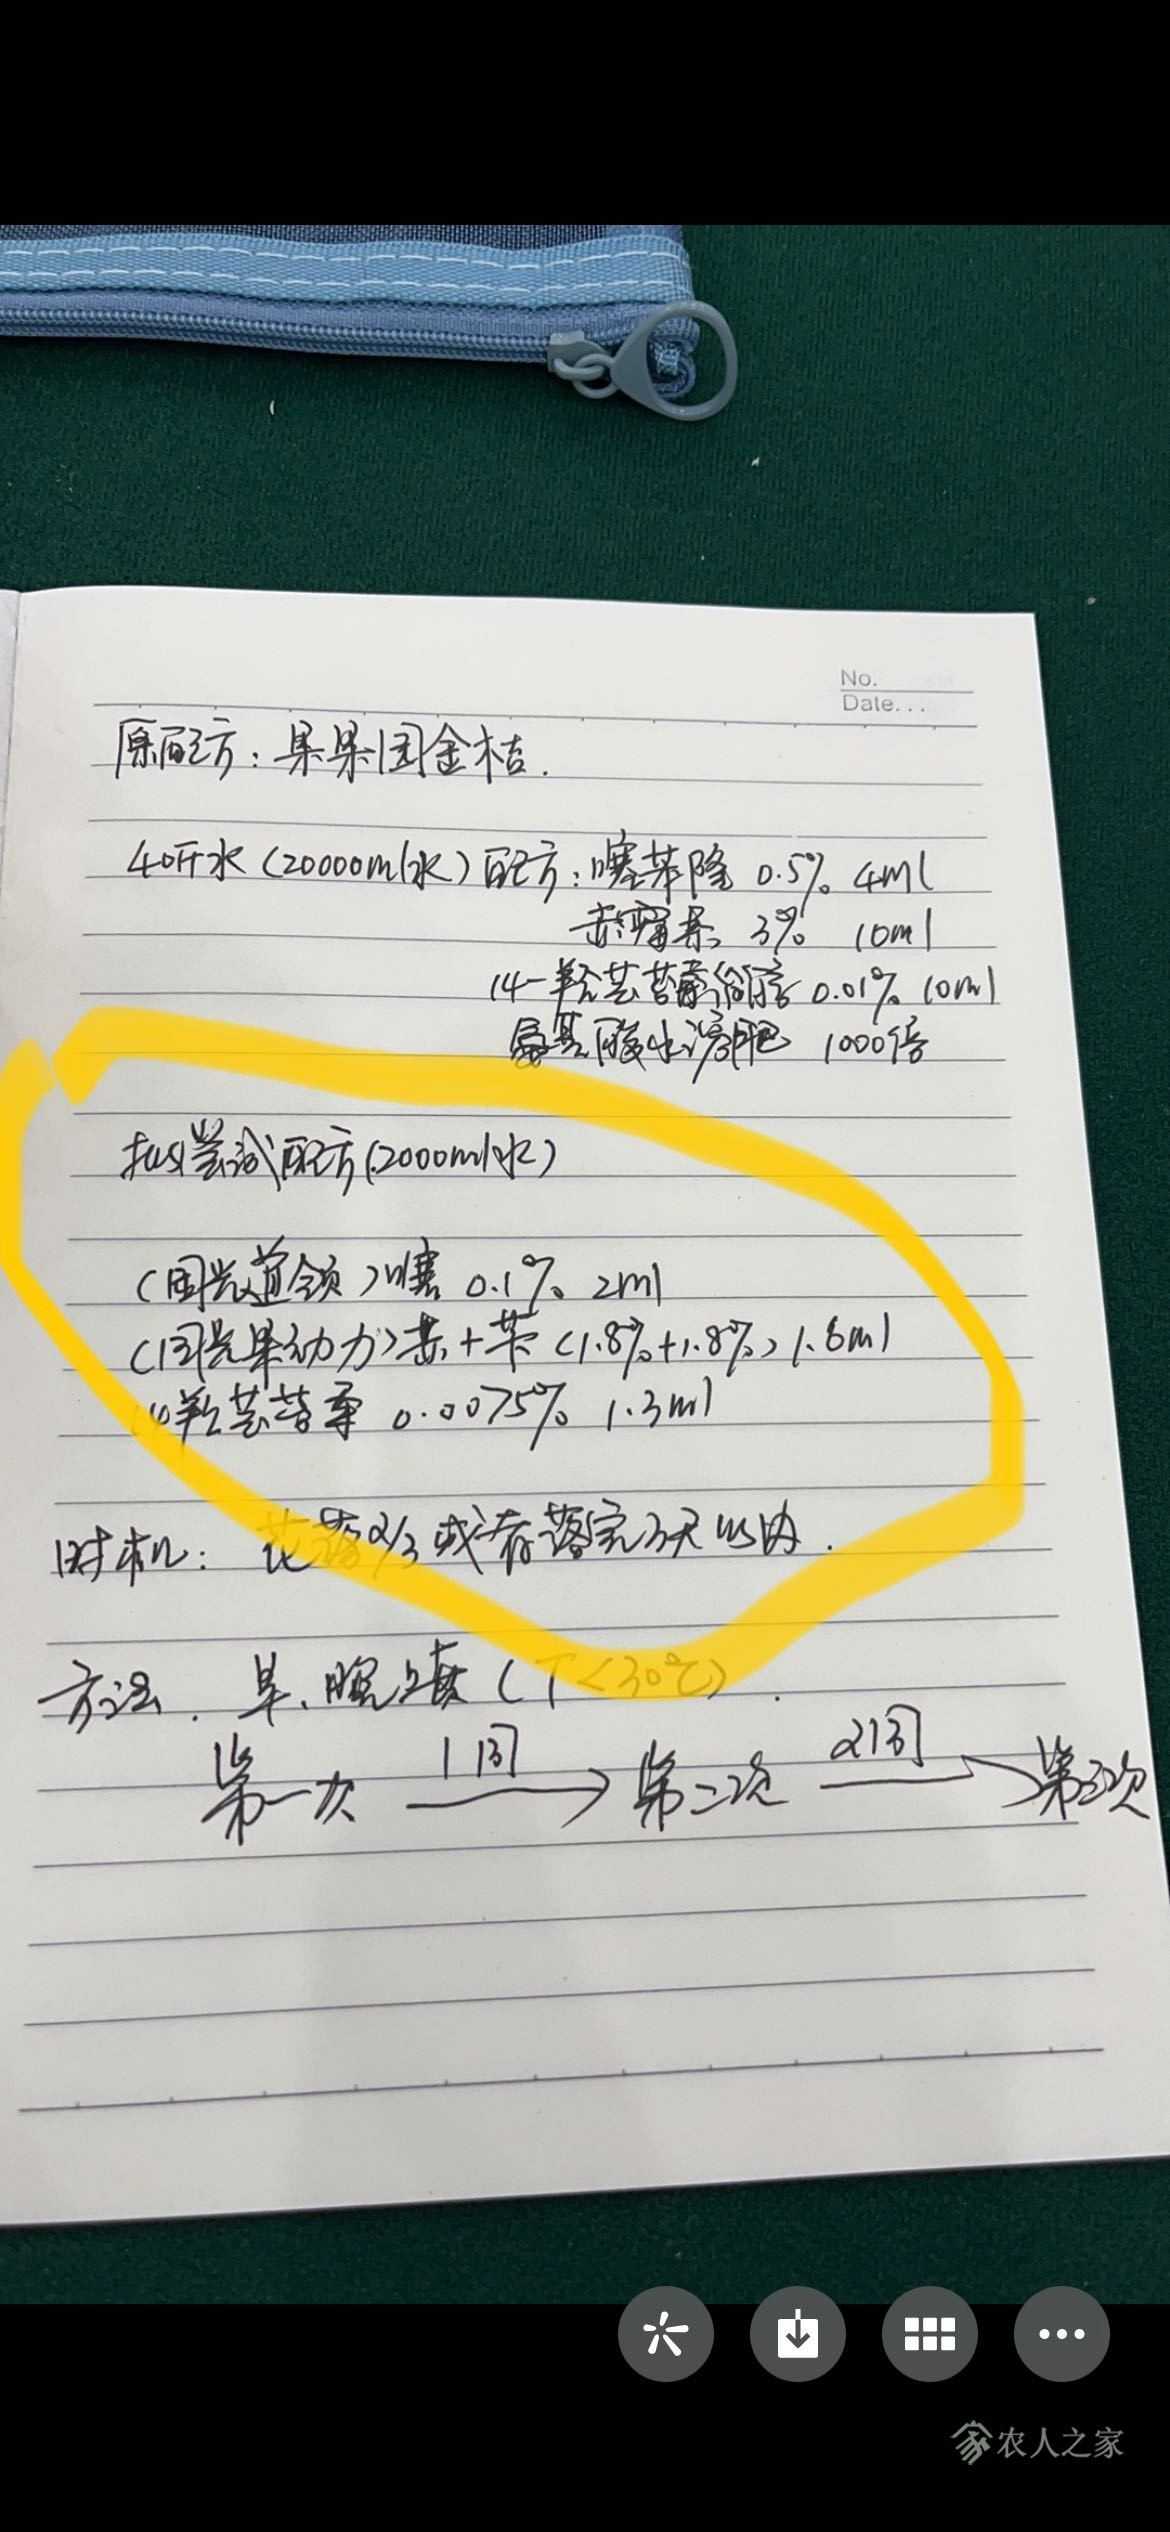 No.
Date...
原配方：果果园金桔.
40斤水（20000ml水）配方：噻苯隆 0.5% 4ml
赤霉素 3% 10ml
14-羟芸苔素甾醇 0.01% 10ml
氨基酸水溶肥 1000倍
拟尝试配方(2000ml水)
(国光道领)噻 0.1% 2ml
(国光果动力)赤+苄(1.8%+1.8%) 1.6ml
14羟芸苔素 0.0075% 1.3ml
时机：花落2/3或者落完3天以内.
方法. 早、晚喷(T<30℃).
第一次 1周 第二次 2周 第三次
农人之家